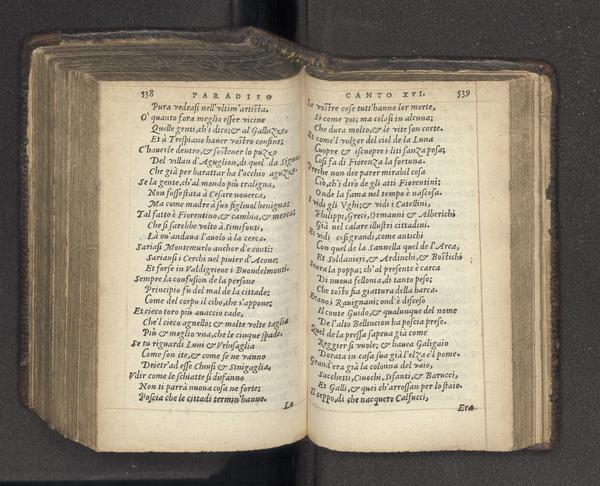 538 PARADISO
Pura vedeasi nell'vltim'artista.
O' quanto fora meglio esser vicine
Quelle genti, ch'i dico; & al Galluzzo,
Et à Trespiano hauer vostro confine;
C'hauerle dentro, & sostener lo puzzo
Del villan d'Aguglion, di quel da Signa,
Che già per barattar ha l'occhio aguzzo.
Se la gente, ch'al mondo più traligna,
Non fosse stata à Cesare nouerca,
Ma come madre à suo figliuol benigna;
Tal fatto è Fiorentino, & cambia, & merca;
Che si sarebbe volto à Simifonti,
Là ou'andaua l'auolo à la cerca.
Sariasi Montemurlo anchor de conti:
Sariansi i Cerchi nel piuier d'Acone;
Et forse in Valdigrieue i Buondelmonti.
Sempre la confusion de la persone
Principio fù del mal de la cittade;
Come del corpo il cibo, che s'appone;
Et cieco toro più auaccio cade,
Che'l cieco agnello; & molte volte taglia
Più & meglio vna, che le cinque spade.
Se tu riguardi Luni & Vrbisaglia
Come son ite, & come se ne vanno
Dietr'ad esse Chiusi & Sinigaglia,
Vdir come le schiatte si disfanno
Non ti parrà nuoua cosa ne forte;
Poscia che le cittadi termin'hanno.
Le
CANTO XVI. 539
Le vostre cose tutt'hanno lor morte,
Si come voi; ma celasi in alcuna;
Che dura molto, & le vite son corte.
Et come'l volger del ciel de la Luna
Cuopre & iscuopre i liti sanza posa;
Cosi fa di Fiorenza la fortuna.
Perche non dee parer mirabil cosa
Ciò, ch'i dirò de gli atti Fiorentini;
Onde la fama nel tempo è nascosa.
I vidi gli Vghi; & vidi i Catellini,
Philippi, Greci, Ormanni & Alberichi
Già nel calare illustri cittadini.
Et vidi cosi grandi, come antichi
Con quel de la Sannella quel de l'Arca,
Et Soldanieri, & Ardinchi, & Bostichi
Soura la poppa; ch'al presente è carca
Di nuoua fellonia, di tanto peso;
Che tosto fia giattura della barca.
Erano i Rauignani; ond'è disceso
Il conte Guido, & qualunque del nome
De l'alto Bellincion ha poscia preso.
Quel de la pressa sapeua già come
Reggier si vuole; & haueua Galigaio
Dorata in casa sua già l'elza e'l pome.
Grand'era già la colonna del vaio,
Sacchetti, Ciuochi, Sifanti, & Barucci,
Et Galli, & quei ch'arrossan per lo staio.
Il ceppo, di che nacquero Calfucci,
Era